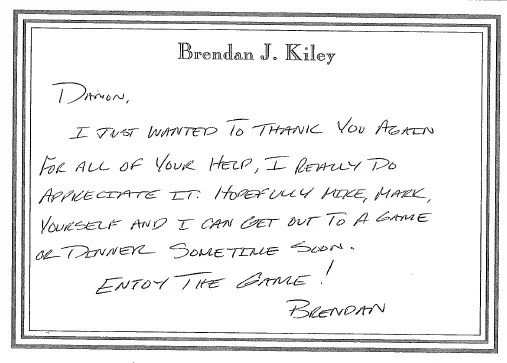 Brendan J. Kiley
Damon,
I JUST WANTED TO THANK YOU AGAIN
FOR ALL OF YOUR HELP, I REALLY DO
APPRECIATE IT. HOPEFULLY MIKE, MARK,
YOURSELF AND I CAN GET OUT TO A GAME
OR DINNER SOMETIME SOON.
ENJOY THE GAME!
BRENDAN